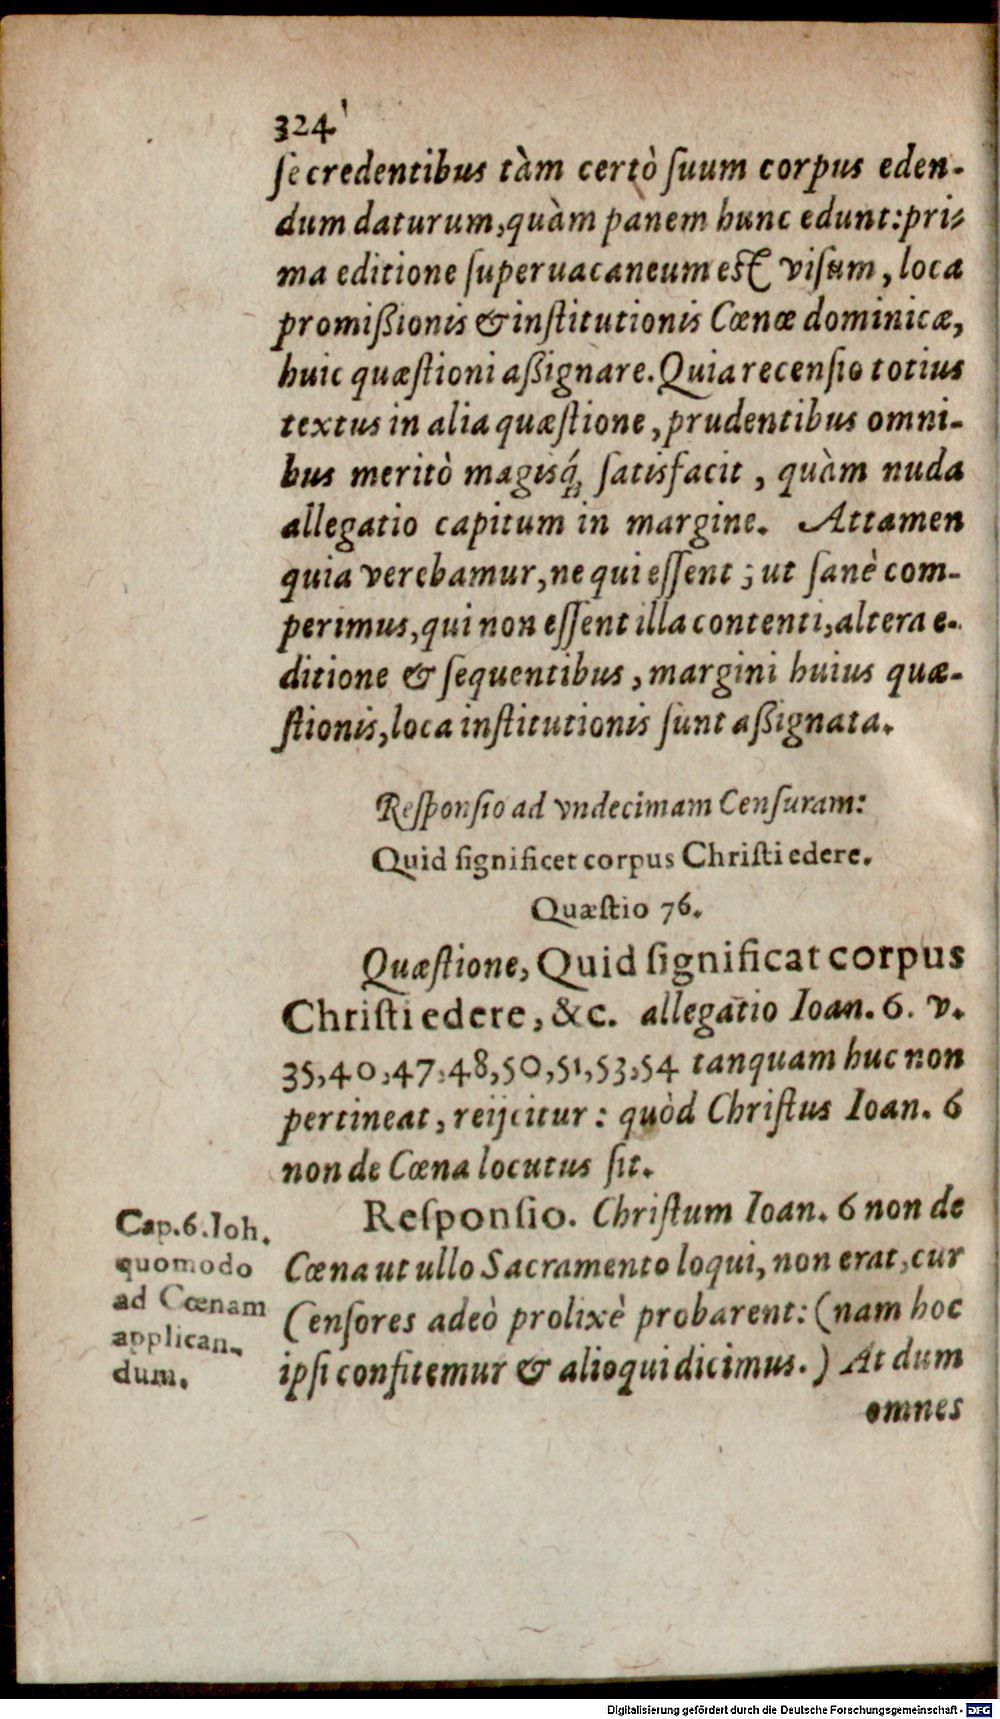 324
ſe credentibus tàm certò ſuum corpus eden-
dum daturum, quàm panem hunc edunt: pri-
ma editione ſuperuacaneum eſt viſum, loca
promißionis & inſtitutionis Cœnæ dominicæ,
huic quæſtioni aßignare. Quia recenſio totius
textus in alia quæſtione, prudentibus omni-
bus meritò magisq́; ſatisfacit, quàm nuda
allegatio capitum in margine. Attamen
quia verebamur, ne qui eſſent; ut ſanè com-
perimus, qui non eſſent illa contenti, altera e-
ditione & ſequentibus, margini huius quæ-
ſtionis, loca inſtitutionis ſunt aßignata.
Reſponſio ad vndecimam Cenſuram:
Quid ſignificet corpus Chriſti edere.
Quæſtio 76.
Quæſtione, Quid ſignificat corpus
Chriſti edere, &c. allegatio Ioan. 6. v.
35,40,47,48,50,51,53,54 tanquam huc non
pertineat, reijcitur: quòd Chriſtus Ioan. 6
non de Cœna locutus ſit.
Cap. 6. Joh.
quomodo
ad Cœnam
applican-
dum.
Reſponſio. Chriſtum Ioan. 6 non de
Cœna ut ullo Sacramento loqui, non erat, cur
Cenſores adeò prolixè probarent: (nam hoc
ipſi confitemur & alioqui dicimus.) At dum
omnes
Digitalisierung gefördert durch die Deutsche Forschungsgemeinschaft - DFG